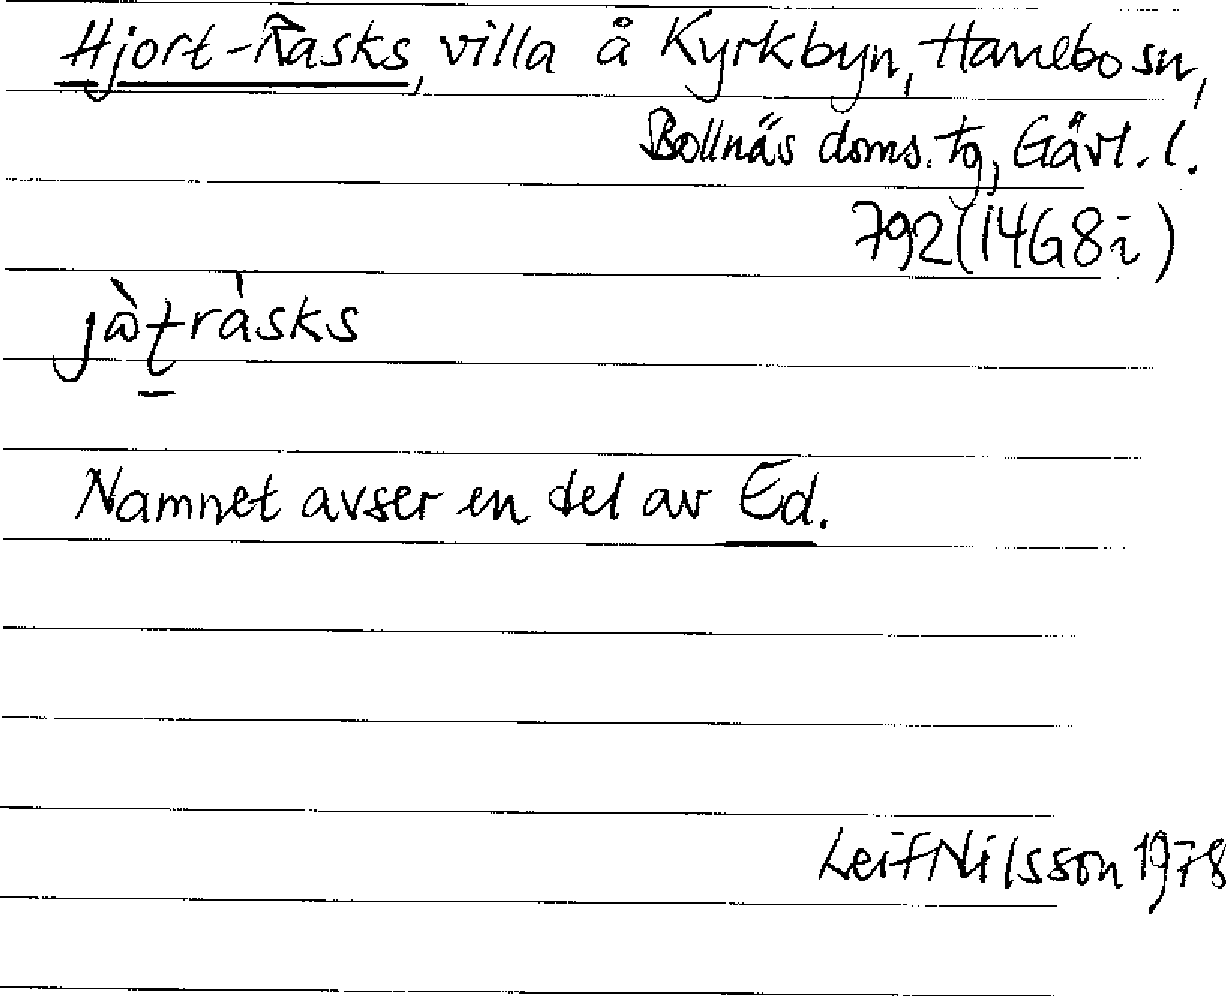 Hjort-Rasks, villa å Kyrkbyn, Hanebo sn,
Bollnäs doms. tg, Gävl. l.
792 (14G8i)
jòtràsks
Namnet avser en del av Ed.
Leif Nilsson 1978